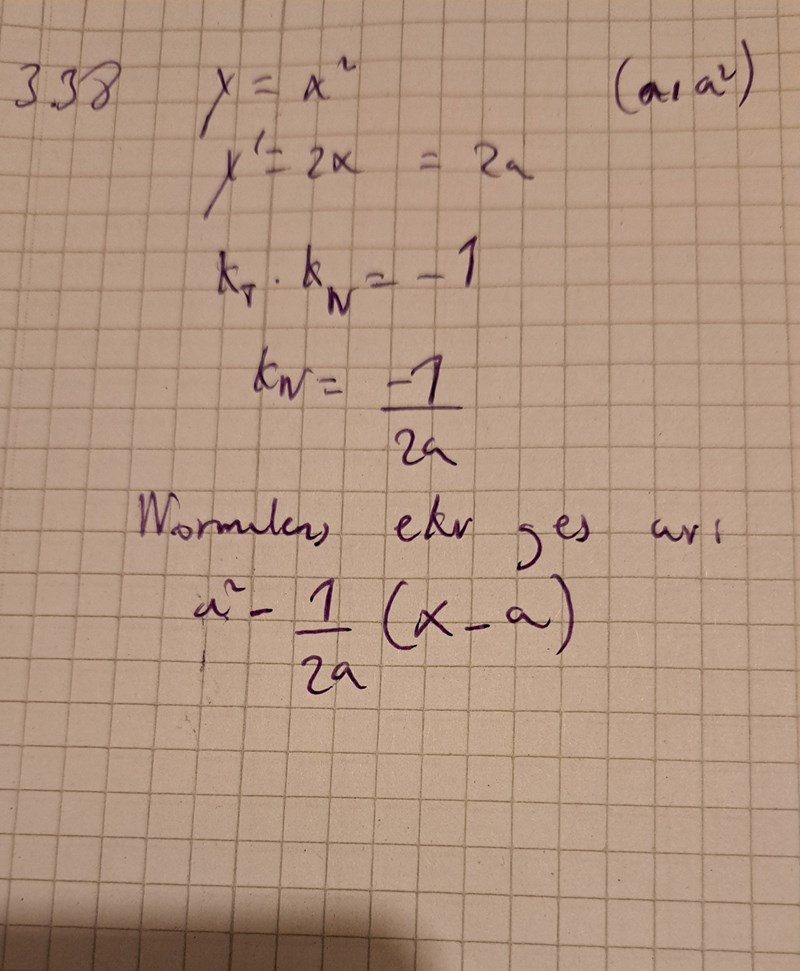 338 y = x² (a, a²)
y' = 2x = 2a
k_T · k_N = -1
k_N = -1/2a
Normalens ekv ges av:
a² - 1/2a (x - a)